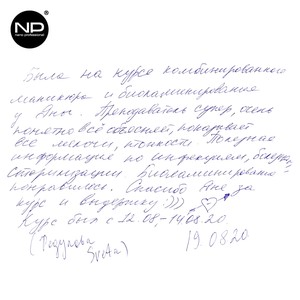 NP
nano professional
Была на курсе комбинированного
маникюра и биоламинирование
у Аны. Преподаватель супер, очень
понятно всё объясняет, показывает
все мелочи, тонкости
информация по инфекциям,
стерилизации Биоламинирование
понравилось. Спасибо Ане за
курс и выдержку :)))
Курс был с 12.08.-14.08.20
19.08.20
Sveta)